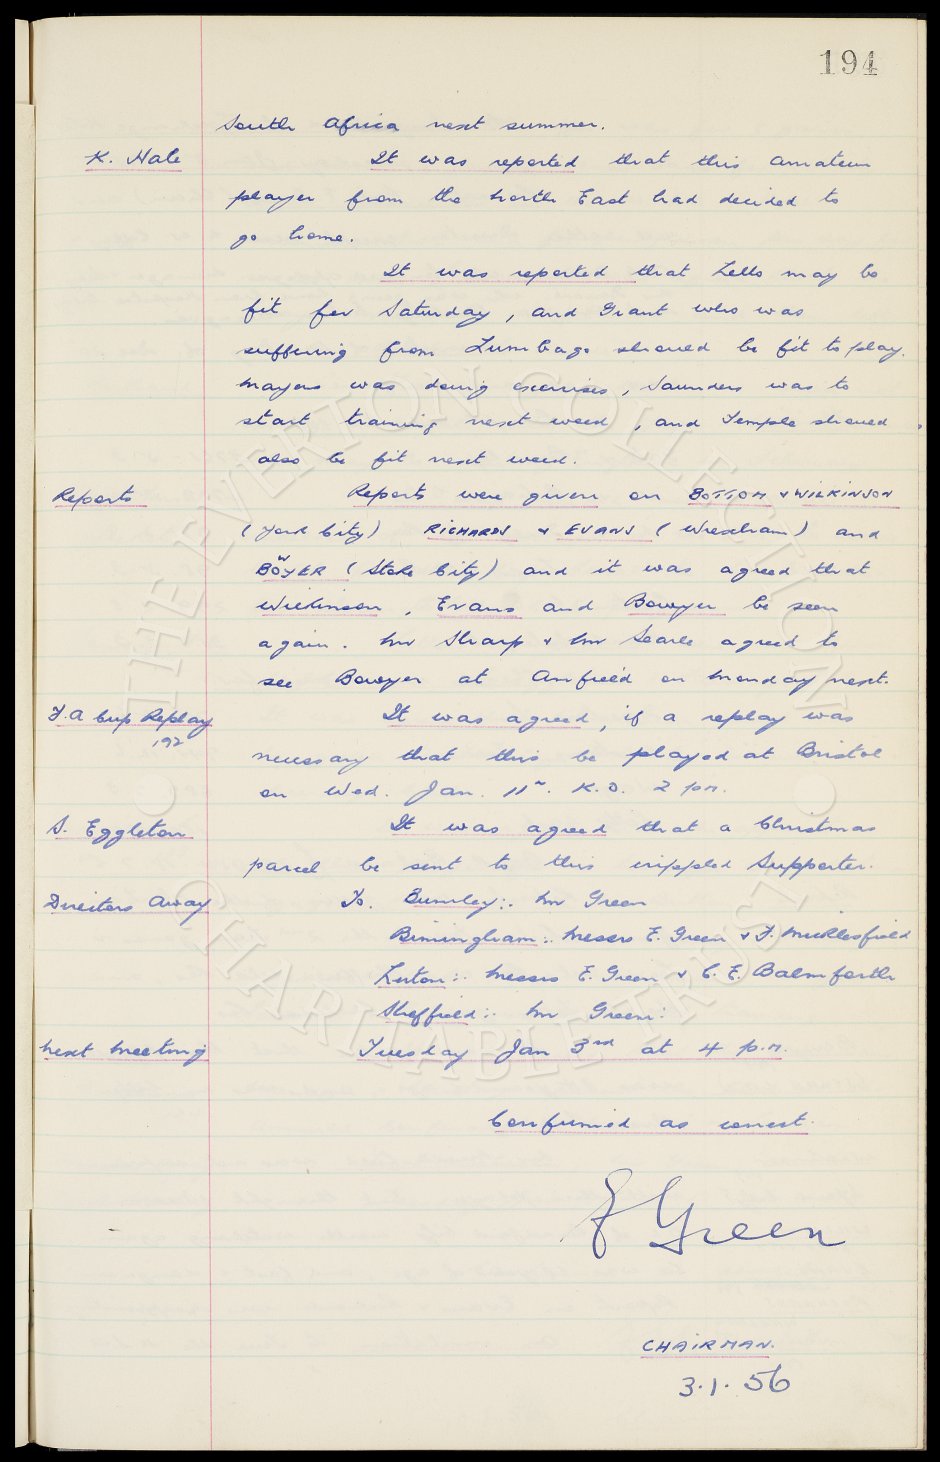 194
South Africa next summer.
K. Hale It was reported that this amateur
player from the North East had decided to
go home.
It was reported that Letts may be
fit for Saturday, and Grant who was
suffering from Lumbago should be fit to play.
Mayers was doing exercises, Saunders was to
start training next week, and Temple should
also be fit next week.
Reports Reports were given on BOTTOM & WILKINSON
(York City) RICHARDS & EVANS (Wrexham) and
BOWYER (Stoke City) and it was agreed that
Wilkinson, Evans and Bowyer be seen
again. Mr Sharp & Mr Searle agreed to
see Bowyer at Anfield on Monday next.
F.A Cup Replay It was agreed, if a replay was
192
necessary that this be played at Bristol
on Wed. Jan. 11th. K.O. 2 pm.
S. Eggleton It was agreed that a Christmas
parcel be sent to this crippled Supporter.
Directors Away To. Burnley:. Mr Green
Birmingham:. Messrs E. Green & F. Micklesfield
Luton:. Messrs E. Green & C. E. Balmforth
Sheffield:. Mr Green:
Next Meeting Tuesday Jan 3rd at 4 p.m.
Confirmed as correct.
E Green
CHAIRMAN.
3.1.56
THE EVERTON COLLECTION
CHARITABLE TRUST